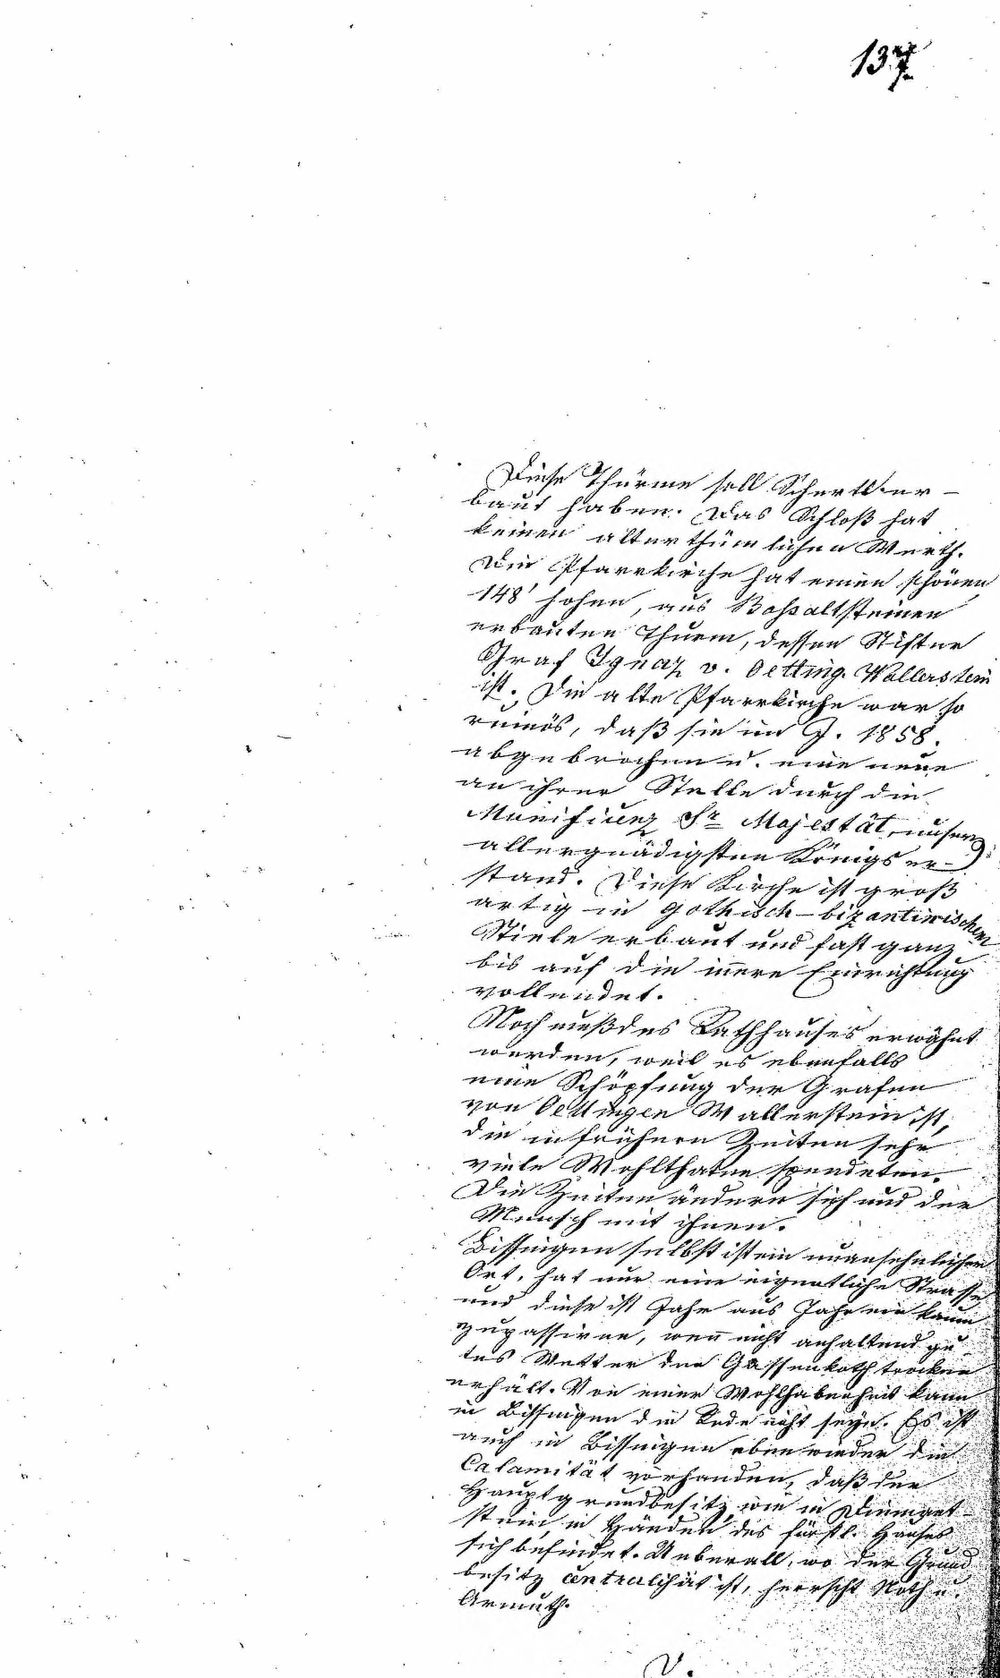 137.
Diese Thürme soll Schertl er-
baut haben. Das Schloß hat
keinen alterthümlichen Werth.
Die Pfarrkirche hat einen schönen
148' hohen, aus Bassaltsteinen
erbauten Thurm, dessen Stifter
Graf Ignaz v. Oetting. Wallerstein
ist. Die alte Pfarrkirche war so
ruinös, daß sie im J. 1858.
abgebrochen u. eine neue
an ihrer Stelle durch die
Munifizenz Sr Majestät, unsers
allergnädigsten Königs er-
stand. Diese Kirche ist groß
artig in gothisch-bizantinischem
Stiele erbaut und fast ganz
bis auf die innere Einrichtung
vollendet.
Noch muß des Rathhauses erwähnt
werden, weil es ebenfalls
eine Schöpfung der Grafen
von Oettingen Wallerstein ist,
die in frühern Zeiten sehr
viele Wohlthaten spendeten.
Die Zeiten ändern sich und der
Mensch mit ihnen.
Bissingen selbst ist ein unansehnlicher
Ort, hat nur eine eigentliche Strasse
und diese ist Jahr aus Jahr ein kaum
zu passiren, wenn nicht anhaltend gu-
tes Wetter den Gassenkoth trocken
erhält. Von einer Wohlhabenheit kann
in Bissingen die Rede nicht seyn. Es ist
auch in Bissingen eben wieder die
Calamität vorhanden, daß der
Hauptgrundbesitz wie in Diemant-
stein, in Händen des fürstl. Hauses
sich befindet. Ueberall, wo der Grund
besitz centralisirt ist, herrscht Noth u.
Armuth.
V.